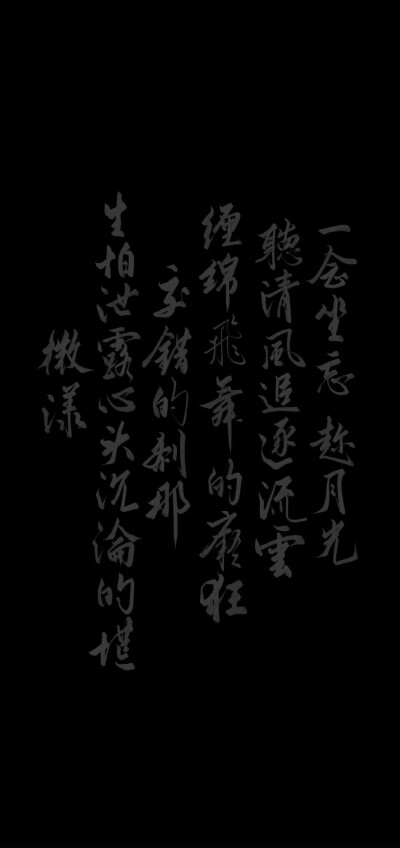 一念坐忘 趁月光
聽清風追逐流雲
纏綿飛舞的癡狂
交錯的刹那
生怕泄露心头沉淪的堪
微漾